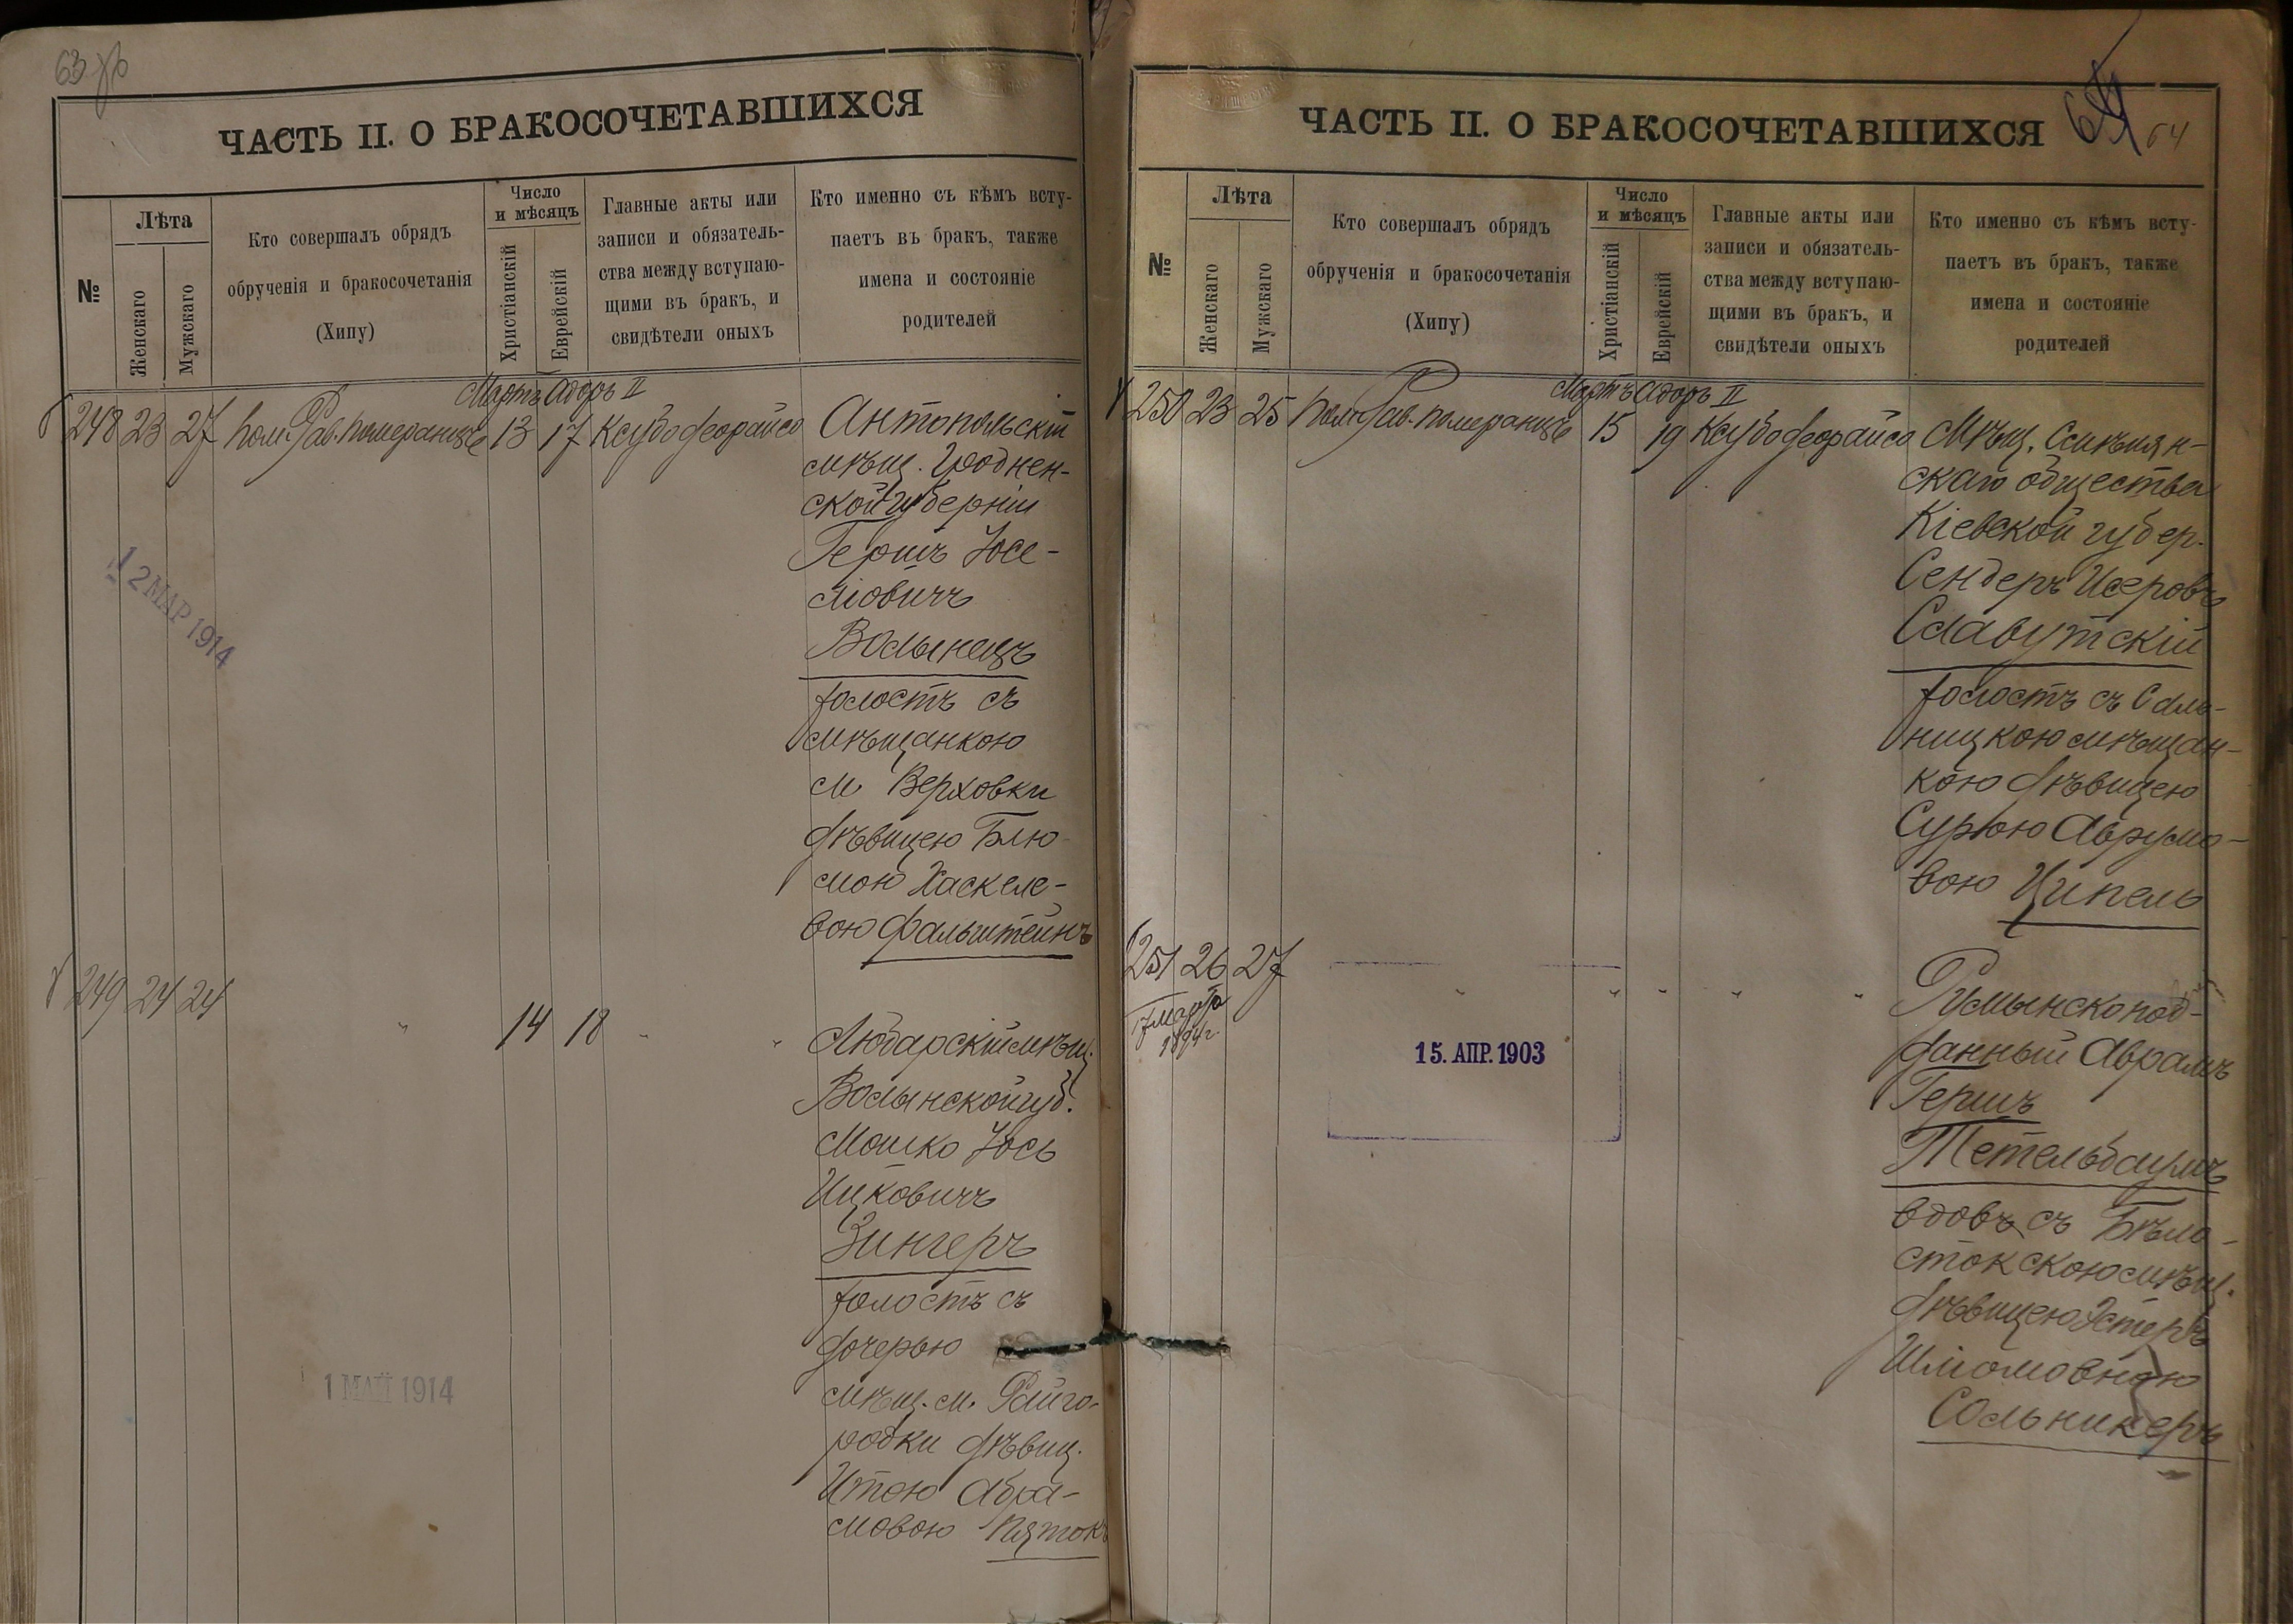 63 об
ЧАСТЬ II. О БРАКОСОЧЕТАВШИХСЯ
№
Лѣта
Женскаго
Мужскаго
Кто совершалъ обрядъ
обрученія и бракосочетанія
(Хипу)
Число
и мѣсяцъ
Христіанскій
Еврейскій
Главные акты или
записи и обязатель-
ства между вступаю-
щими въ бракъ, и
свидѣтели оныхъ
Кто именно съ кѣмъ всту-
паетъ въ бракъ, также
имена и состояніе
родителей
Мартъ Адоръ II
248 23 27 Пом. Рав. Померанцъ 13 17 Ксубо деорайсо Антопольскій
мѣщ. Гроднен-
ской губерніи
Гершъ Іосе-
ліовичъ
Волынецъ
холостъ съ
мѣщанкою
м Верховки
дѣвицею Блю-
мою Хаскеле-
вою Фальштейнъ
12 МАР 1914
249 24 24 " 14 18 " " Любарскій мѣщ.
Волынской губ.
Мошко Іось
Ицковичъ
Зингеръ
холостъ съ
дочерью
мѣщ. м. Райго-
родки дѣвиц.
Итою Абра-
мовою Пятокъ
1 МАЙ 1914
ЧАСТЬ II. О БРАКОСОЧЕТАВШИХСЯ
64
№
Лѣта
Женскаго
Мужскаго
Кто совершалъ обрядъ
обрученія и бракосочетанія
(Хипу)
Число
и мѣсяцъ
Христіанскій
Еврейскій
Главные акты или
записи и обязатель-
ства между вступаю-
щими въ бракъ, и
свидѣтели оныхъ
Кто именно съ кѣмъ всту-
паетъ въ бракъ, также
имена и состояніе
родителей
Мартъ Адоръ II
250 23 25 Пом. Рав. Померанцъ 15 19 Ксубо деорайсо Мѣщ. Смѣлян-
скаго общества
Кіевской губер.
Сендеръ Исеровъ
Славутскій
холостъ съ Саль-
ницкою мѣщан-
кою дѣвицею
Сурою Аврумо-
вою Ципель
251 26 27 " " " " " Румынско под-
данный Аврамъ
Гершъ
Тетельбаумъ
вдовъ съ Бѣло-
стокскою мѣщ.
дѣвицею Эстеръ
Шліомовною
Сольникеръ
17 Марта
15. АПР. 1903